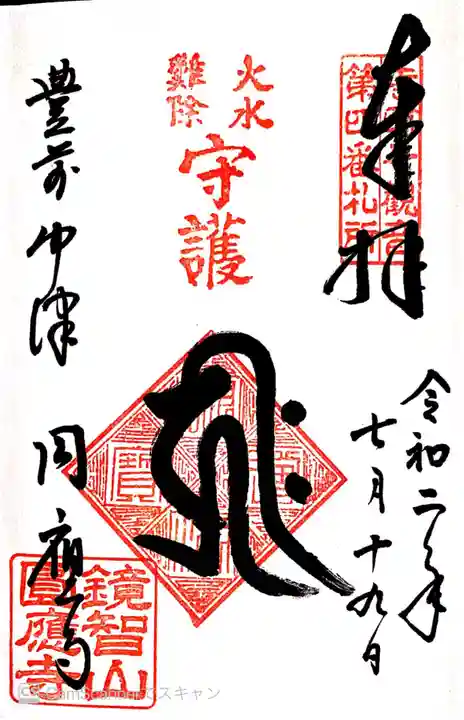 奉拝
第四番札所
令和二年
七月十九日
火水
難除
守護
豊前中津
円應寺
鏡智山
圓應寺
CamScannerでスキャン